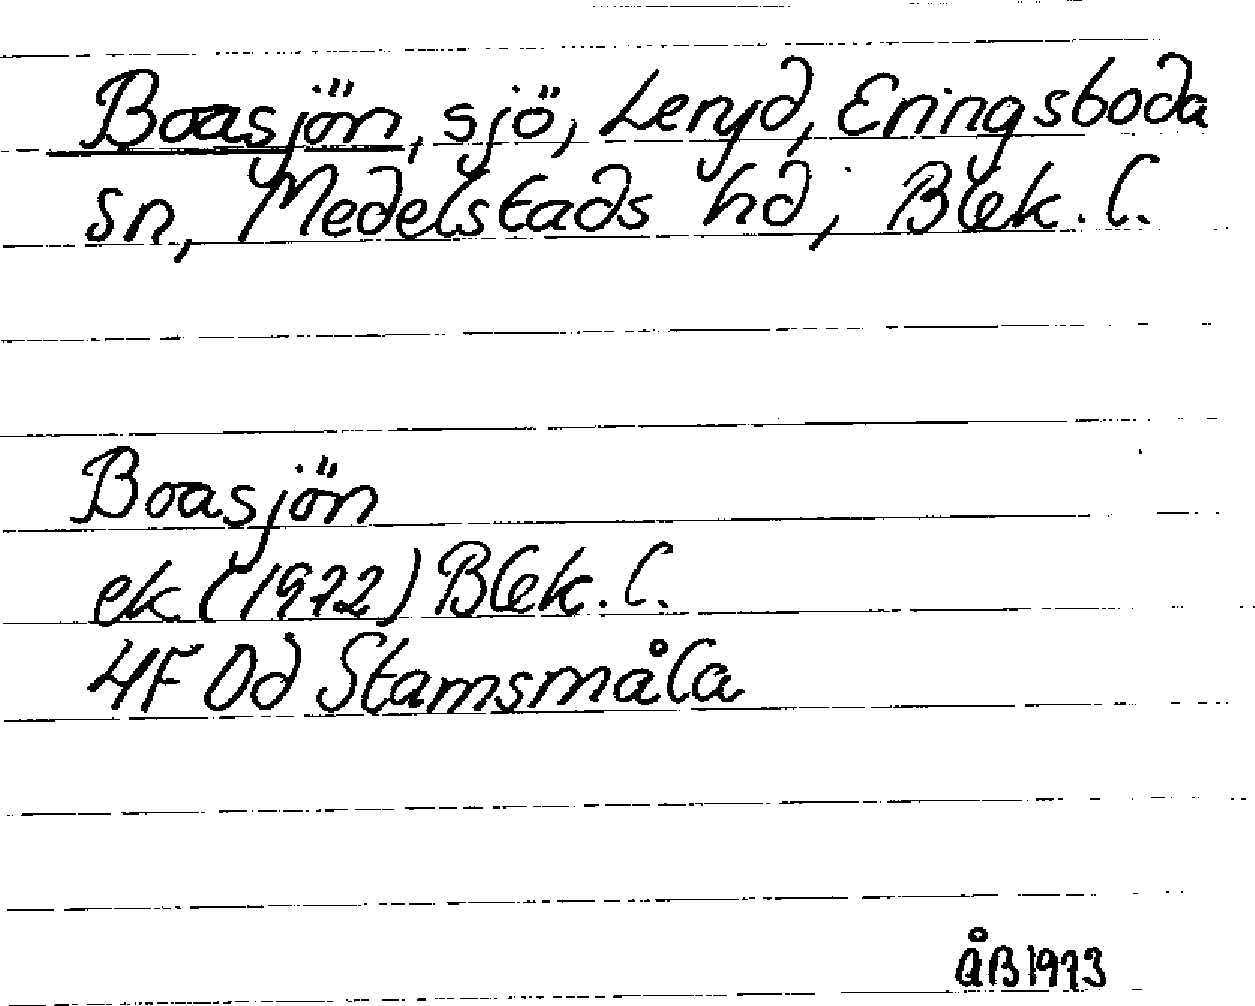 Boasjön, sjö, Leryd, Eringsboda
sn, Medelstads hd, Blek. l.
Boasjön
ek. (1972) Blek. l.
4F 0d Stamsmåla
ÅB 1973